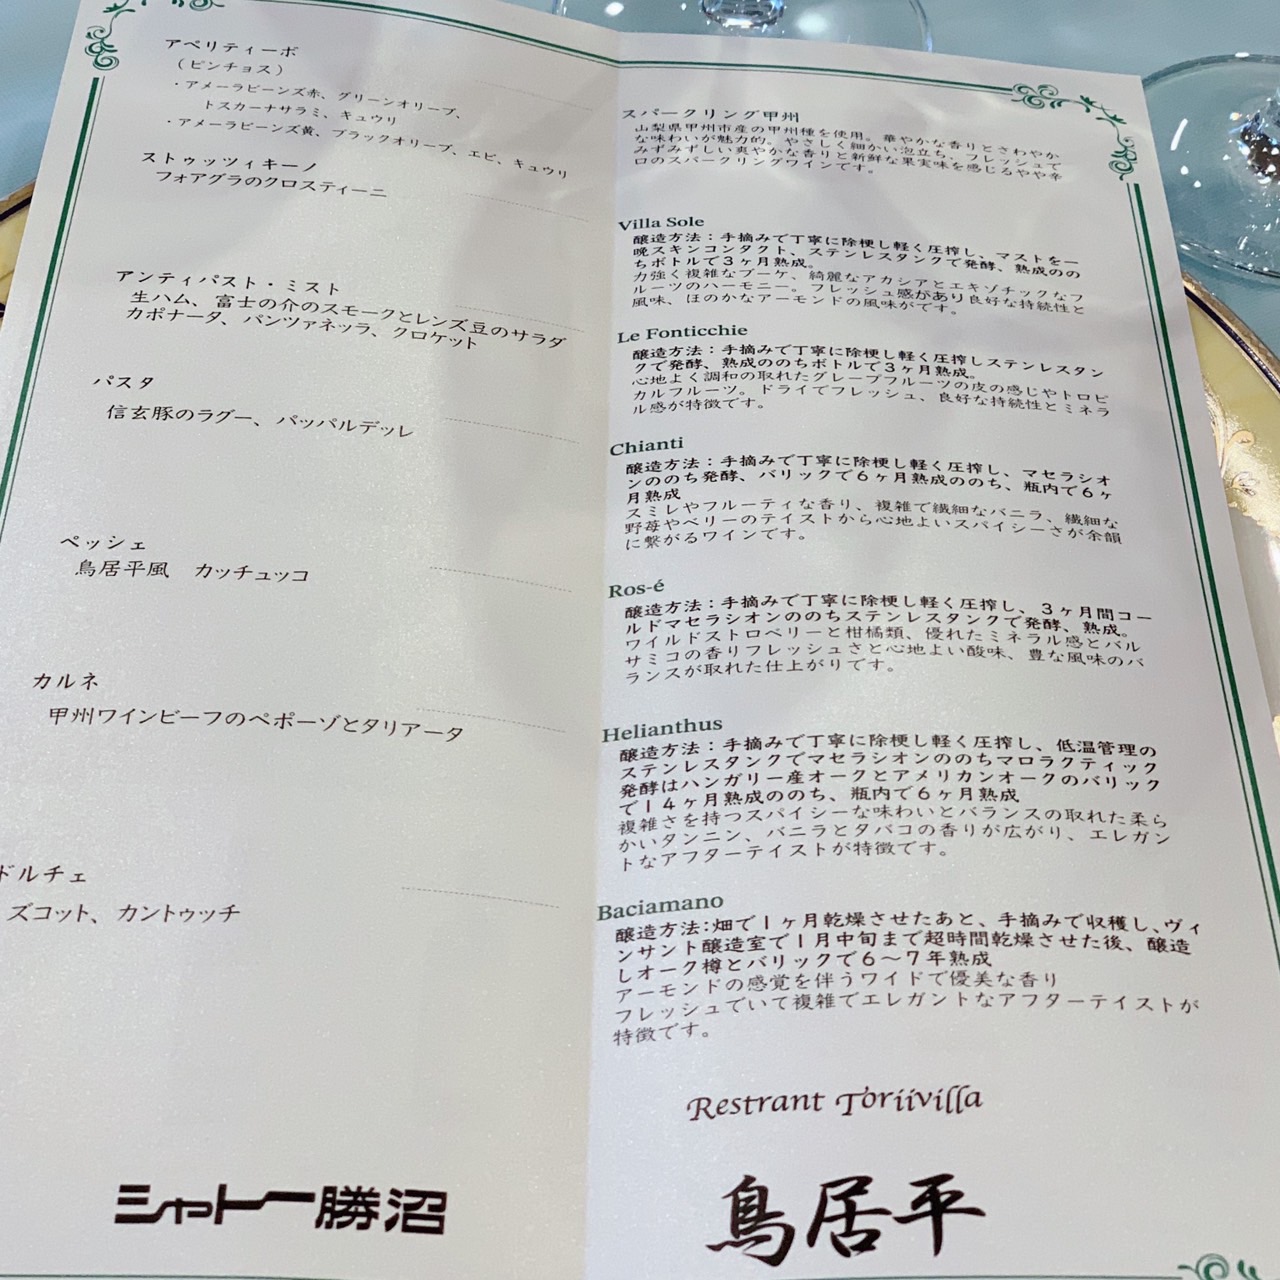 アペリティーボ
（ピンチョス）
・アメーラビーンズ赤、グリーンオリーブ、
トスカーナサラミ、キュウリ
・アメーラビーンズ黄、ブラックオリーブ、エビ、キュウリ
ストゥッツィキーノ
フォアグラのクロスティーニ
アンティパスト・ミスト
生ハム、富士の介のスモークとレンズ豆のサラダ
カポナータ、パンツァネッラ、クロケット
パスタ
信玄豚のラグー、パッパルデッレ
ペッシェ
鳥居平風　カッチュッコ
カルネ
甲州ワインビーフのペポーゾとタリアータ
ドルチェ
ズコット、カントゥッチ
シャトー勝沼
スパークリング甲州
山梨県甲州市産の甲州種を使用。華やかな香りとさわやか
な味わいが魅力的。やさしく細かい泡立ち、フレッシュで
みずみずしい爽やかな香りと新鮮な果実味を感じるやや辛
口のスパークリングワインです。
Villa Sole
醸造方法：手摘みで丁寧に除梗し軽く圧搾し、マストを一
晩スキンコンタクト、ステンレスタンクで発酵、熟成のの
ちボトルで３ヶ月熟成。
力強く複雑なブーケ、綺麗なアカシアとエキゾチックなフ
ルーツのハーモニー。フレッシュ感があり良好な持続性と
風味、ほのかなアーモンドの風味がです。
Le Fonticchie
醸造方法：手摘みで丁寧に除梗し軽く圧搾しステンレスタン
クで発酵、熟成ののちボトルで３ヶ月熟成。
心地よく調和の取れたグレープフルーツの皮の感じやトロピ
カルフルーツ。ドライでフレッシュ、良好な持続性とミネラ
ル感が特徴です。
Chianti
醸造方法：手摘みで丁寧に除梗し軽く圧搾し、マセラシオ
ンののち発酵、バリックで６ヶ月熟成ののち、瓶内で６ヶ
月熟成
スミレやフルーティな香り、複雑で繊細なバニラ、繊細な
野苺やベリーのテイストから心地よいスパイシーさが余韻
に繋がるワインです。
Ros-é
醸造方法：手摘みで丁寧に除梗し軽く圧搾し、３ヶ月間コー
ルドマセラシオンののちステンレスタンクで発酵、熟成。
ワイルドストロベリーと柑橘類、優れたミネラル感とバル
サミコの香りフレッシュさと心地よい酸味、豊な風味のバ
ランスが取れた仕上がりです。
Helianthus
醸造方法：手摘みで丁寧に除梗し軽く圧搾し、低温管理の
ステンレスタンクでマセラシオンののちマロラクティック
発酵はハンガリー産オークとアメリカンオークのバリック
で１４ヶ月熟成ののち、瓶内で６ヶ月熟成
複雑さを持つスパイシーな味わいとバランスの取れた柔ら
かいタンニン、バニラとタバコの香りが広がり、エレガン
トなアフターテイストが特徴です。
Baciamano
醸造方法：畑で１ヶ月乾燥させたあと、手摘みで収穫し、ヴィ
ンサント醸造室で１月中旬まで超時間乾燥させた後、醸造
しオーク樽とバリックで６～７年熟成
アーモンドの感覚を伴うワイドで優美な香り
フレッシュでいて複雑でエレガントなアフターテイストが
特徴です。
Restrant Toriivilla
鳥居平